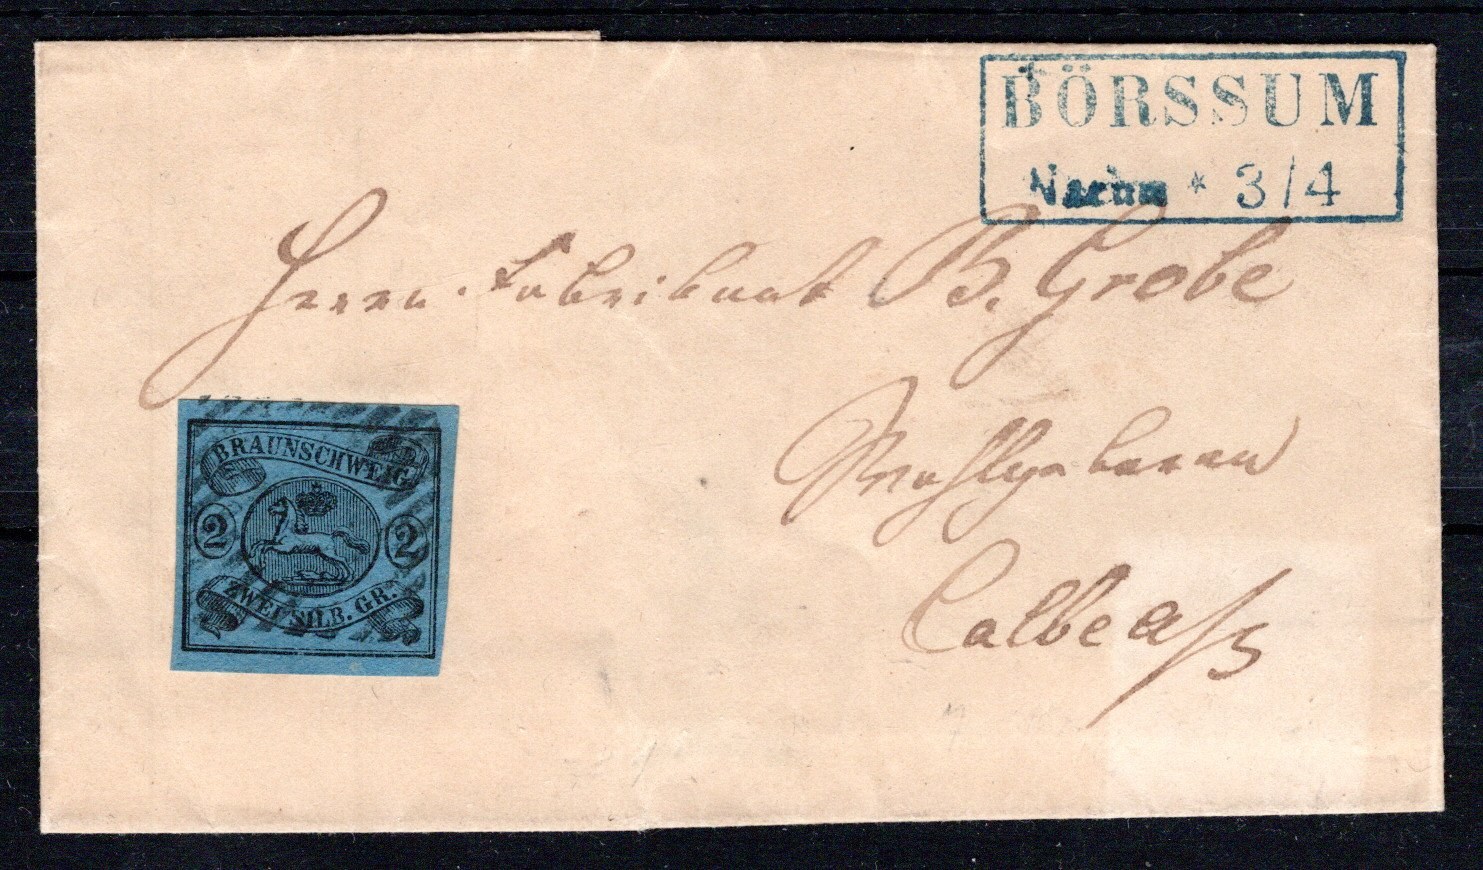 BÖRSSUM
Nachm * 3/4
Herrn Fabrikant B. Grobe
Calbe a/S
BRAUNSCHWEIG
2 2
ZWEI SILB. GR.